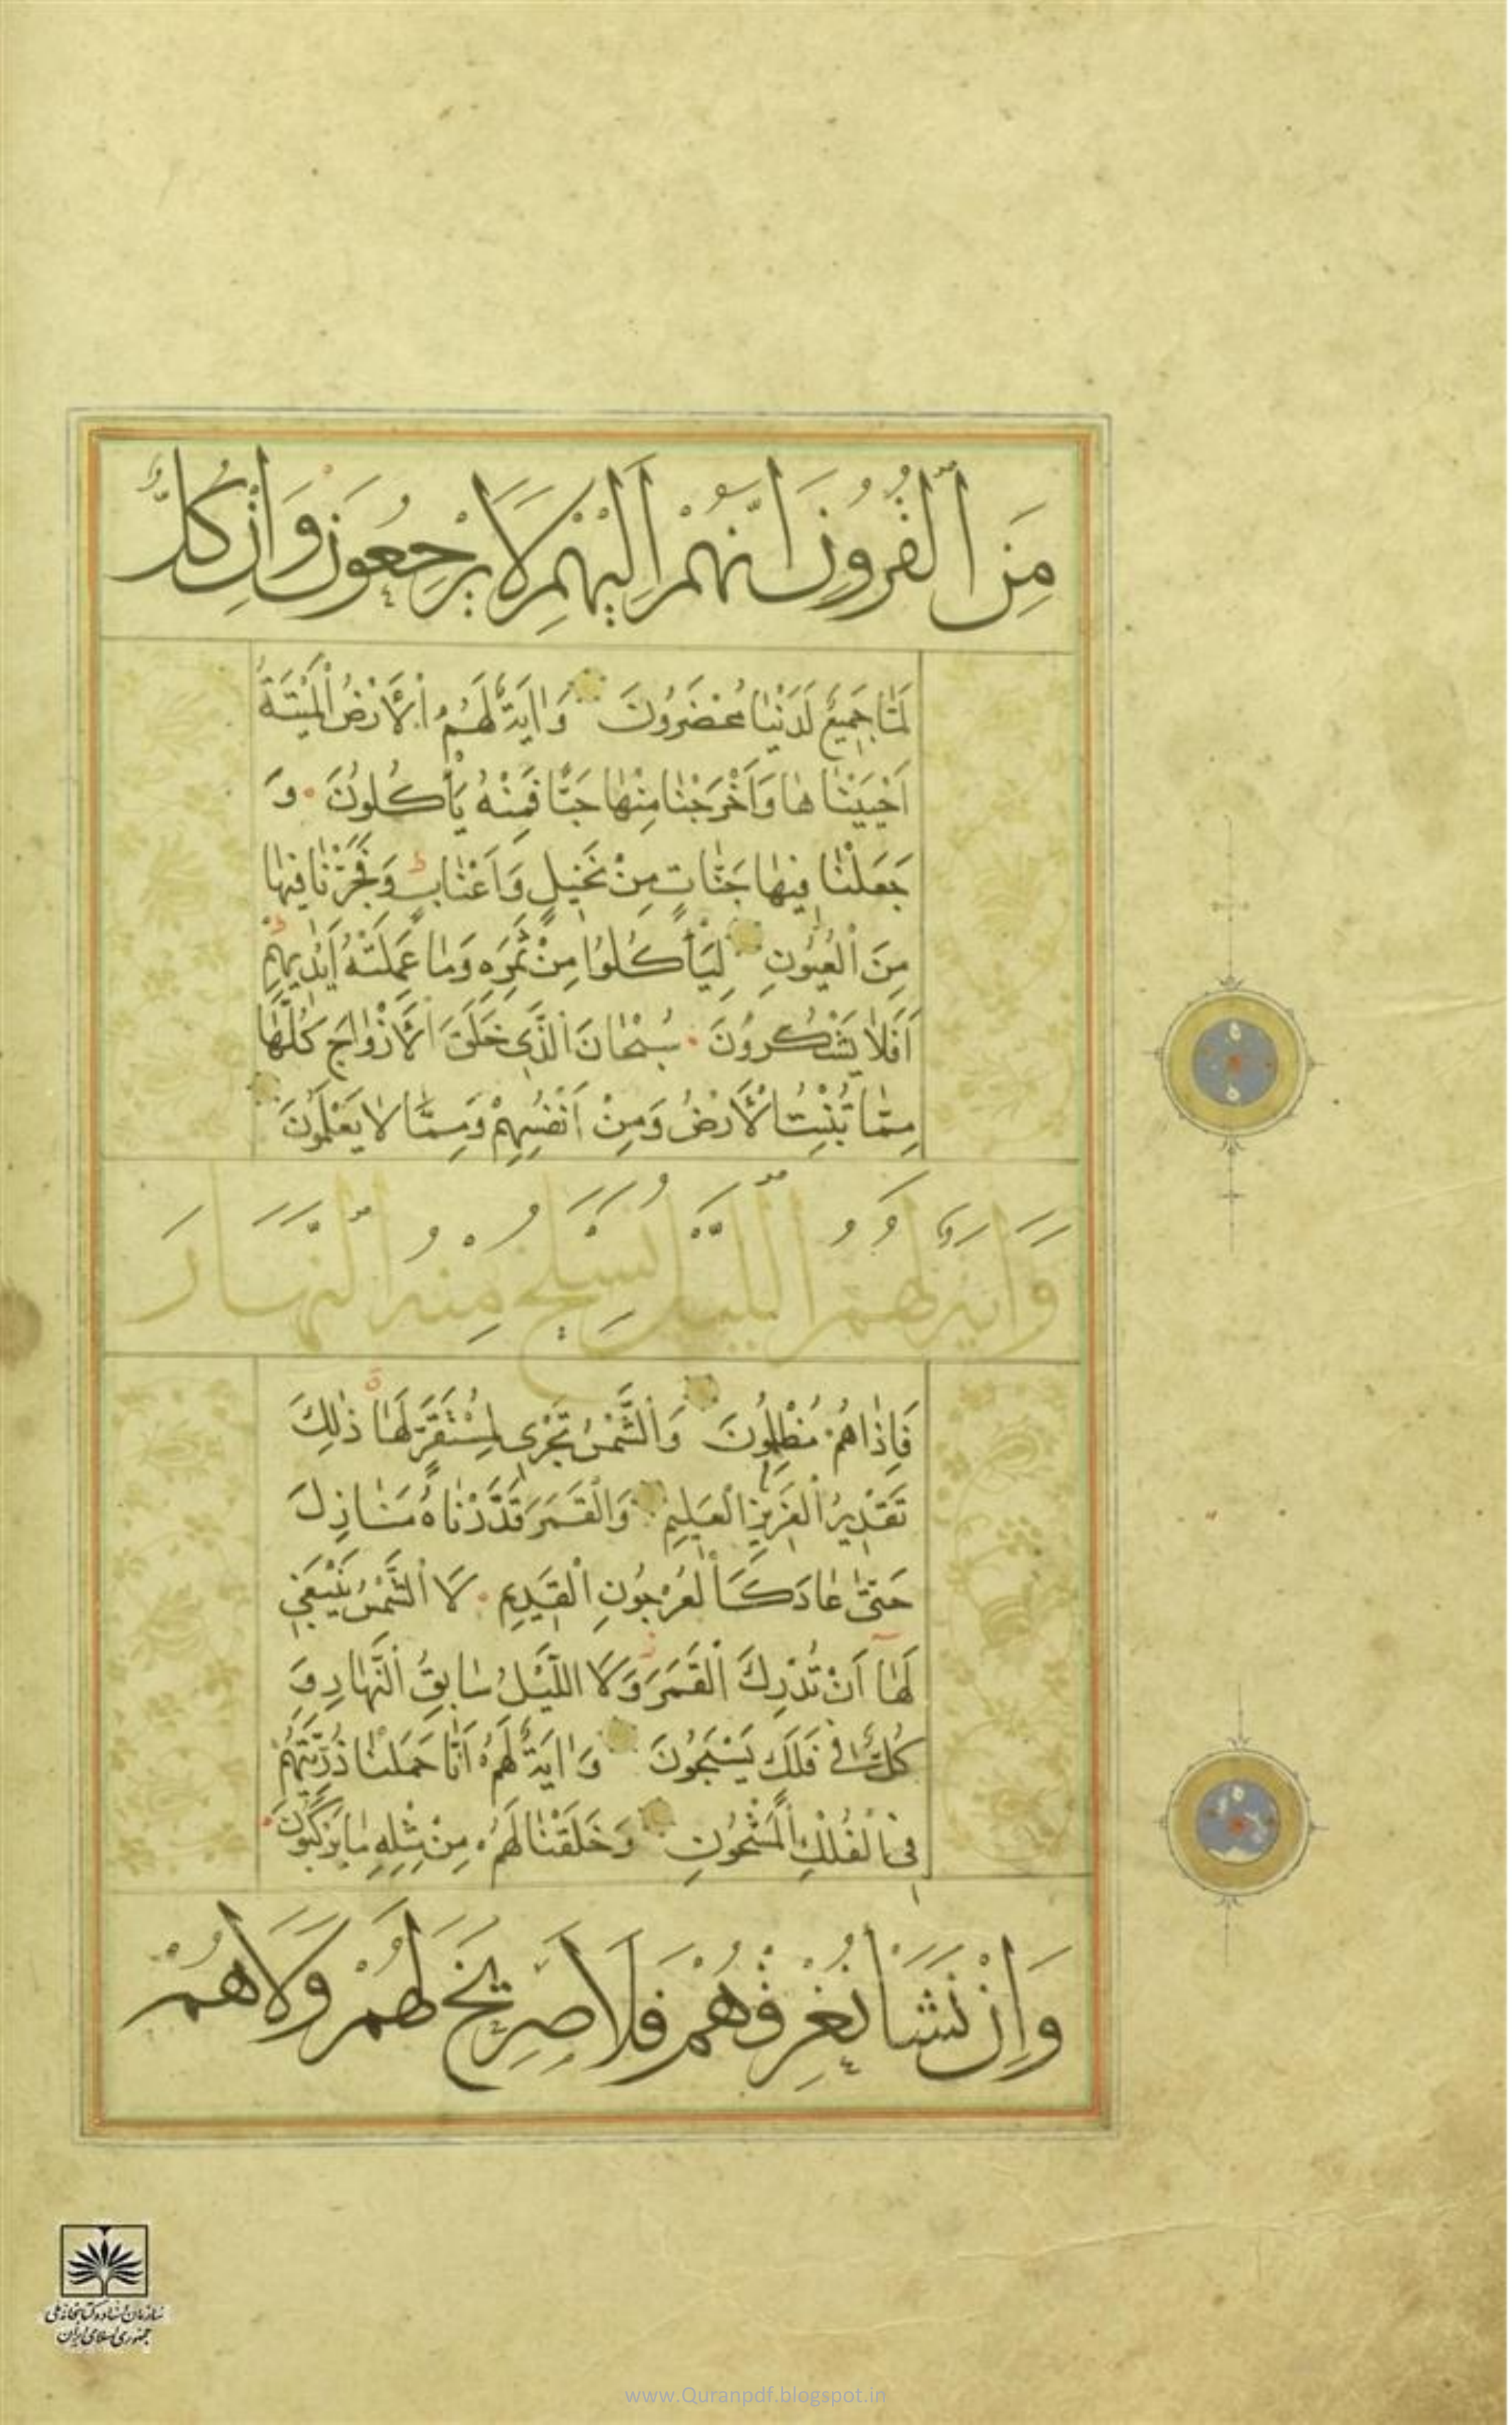 مِنَ الْقُرُونِ اَنَّهُمْ اِلَيْهِمْ لَا يَرْجِعُونَ وَاِنْ كُلٌّ
لَمَّا جَمِيعٌ لَدَيْنَا مُحْضَرُونَ وَاٰيَةٌ لَهُمُ الْاَرْضُ الْمَيْتَةُ
اَحْيَيْنَاهَا وَاَخْرَجْنَا مِنْهَا حَبًّا فَمِنْهُ يَأْكُلُونَ وَ
جَعَلْنَا فِيهَا جَنَّاتٍ مِنْ نَخِيلٍ وَاَعْنَابٍ وَفَجَّرْنَا فِيهَا
مِنَ الْعُيُونِ لِيَأْكُلُوا مِنْ ثَمَرِهِ وَمَا عَمِلَتْهُ اَيْدِيهِمْ
اَفَلَا يَشْكُرُونَ سُبْحَانَ الَّذِي خَلَقَ الْاَزْوَاجَ كُلَّهَا
مِمَّا تُنْبِتُ الْاَرْضُ وَمِنْ اَنْفُسِهِمْ وَمِمَّا لَا يَعْلَمُونَ
وَاٰيَةٌ لَهُمُ اللَّيْلُ نَسْلَخُ مِنْهُ النَّهَارَ
فَاِذَا هُمْ مُظْلِمُونَ وَالشَّمْسُ تَجْرِي لِمُسْتَقَرٍّ لَهَا ذٰلِكَ
تَقْدِيرُ الْعَزِيزِ الْعَلِيمِ وَالْقَمَرَ قَدَّرْنَاهُ مَنَازِلَ
حَتّٰى عَادَ كَالْعُرْجُونِ الْقَدِيمِ لَا الشَّمْسُ يَنْبَغِي
لَهَا اَنْ تُدْرِكَ الْقَمَرَ وَلَا اللَّيْلُ سَابِقُ النَّهَارِ وَ
كُلٌّ فِي فَلَكٍ يَسْبَحُونَ وَاٰيَةٌ لَهُمْ اَنَّا حَمَلْنَا ذُرِّيَّتَهُمْ
فِي الْفُلْكِ الْمَشْحُونِ وَخَلَقْنَا لَهُمْ مِنْ مِثْلِهِ مَا يَرْكَبُونَ
وَاِنْ نَشَأْ نُغْرِقْهُمْ فَلَا صَرِيخَ لَهُمْ وَلَا هُمْ
سازمان اسناد و کتابخانه ملی
جمهوری اسلامی ایران
www.Quranpdf.blogspot.in